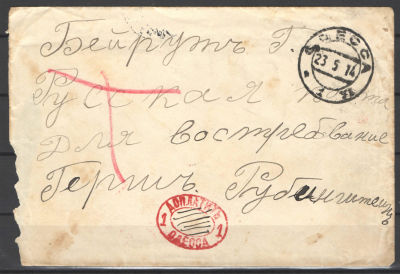 Бейрутъ Г.
ОДЕССА
23 5 14
Русская Почта
Для востребвание
Гершъ Рубинштейнъ
Т
ДОПЛАТИТЬ
1 1
ОДЕССА